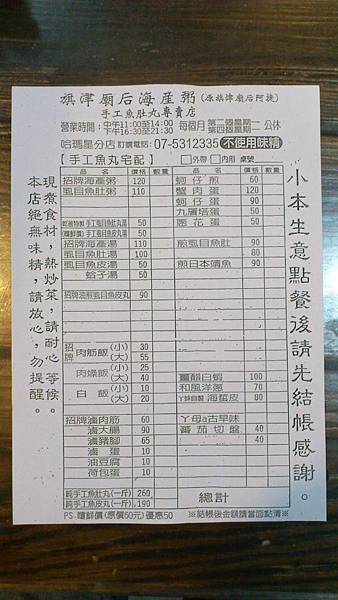 旗津廟后海産粥(原旗津廟后阿捷)
手工魚肚丸專賣店
營業時間:中午11:00至14:00 下午16:30至21:30 每個月 第二個星期一 第四個星期一 公休
哈瑪星分店 訂購電話: 07-5312335 不使用味精
【手工魚丸宅配】 □外帶 □內用 桌號
品名 價格 數量 品名 價格 數量
招牌海產粥 120 蚵仔煎 60
虱目魚肚粥 110 蟹肉蛋 120
蚵仔蛋 90
九層塔蛋 50
手工虱目魚肚丸湯 50 蔥花蛋 50
手工虱目魚皮丸湯 50
招牌海產湯 110 煎虱目魚肚 90
虱目魚肚湯 100 80
虱目魚皮湯 50 煎日本鯖魚 90
蛤子湯 50
招牌油煎虱目魚皮丸 90
招牌 肉筋飯 (小) 30
(大) 55
肉燥飯 (小) 25
(大) 40 薑醋白蝦 100
白飯 (小) 10 和風洋蔥 70
(大) 15 ㄚ妹自製 海蜇皮 80
招牌滷肉筋 60 ㄚ母ㄟ古早味
滷大腸 90 蕃茄切盤 40
滷豬腳 65 40
滷蛋 10
油豆腐 10
荷包蛋 10
純手工魚肚丸(一斤) 260 總計
純手工魚皮丸(一斤) 190
PS.嚐鮮價(原價60元)優惠50 ※結帳後金額請當面點清※
小本生意點餐後請先結帳感謝。
現煮食材,熱炒菜,請耐心等候。
本店絕無味精,請放心,勿提醒。